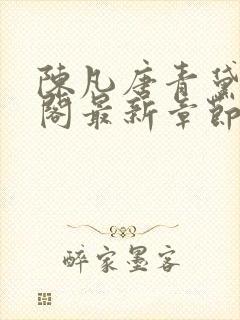 陳凡唐青黛
閣最新章節
醉家墨客